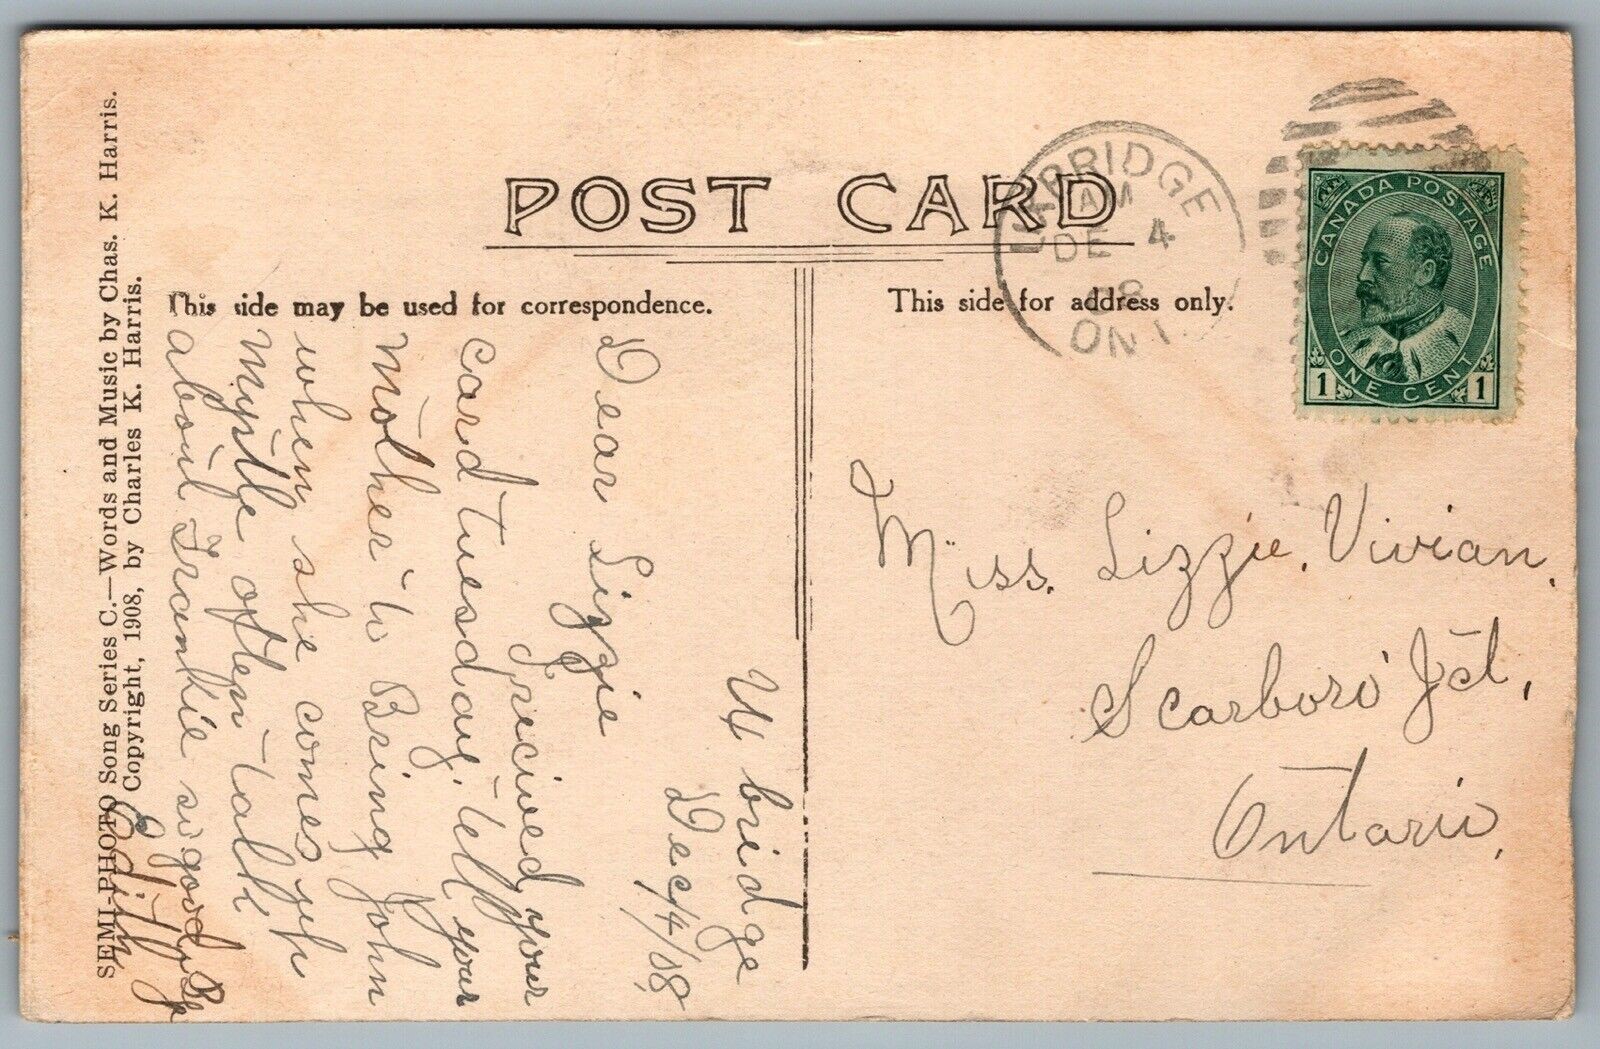 POST CARD
This side may be used for correspondence.
This side for address only.
UXBRIDGE
AM
DE 4
08
ONT
CANADA POSTAGE
1 ONE CENT 1
Uxbridge
Dec/4/08
Dear Lizzie
I recived your
card tuesday, tell your
Mother to Bring John
when she comes up
Myrtle often talk
about Frankie so good By
Edith
Miss. Lizzie. Vivian.
Scarboro Jct,
Ontario,
SEMI-PHOTO Song Series C.—Words and Music by Chas. K. Harris.
Copyright, 1908, by Charles K. Harris.